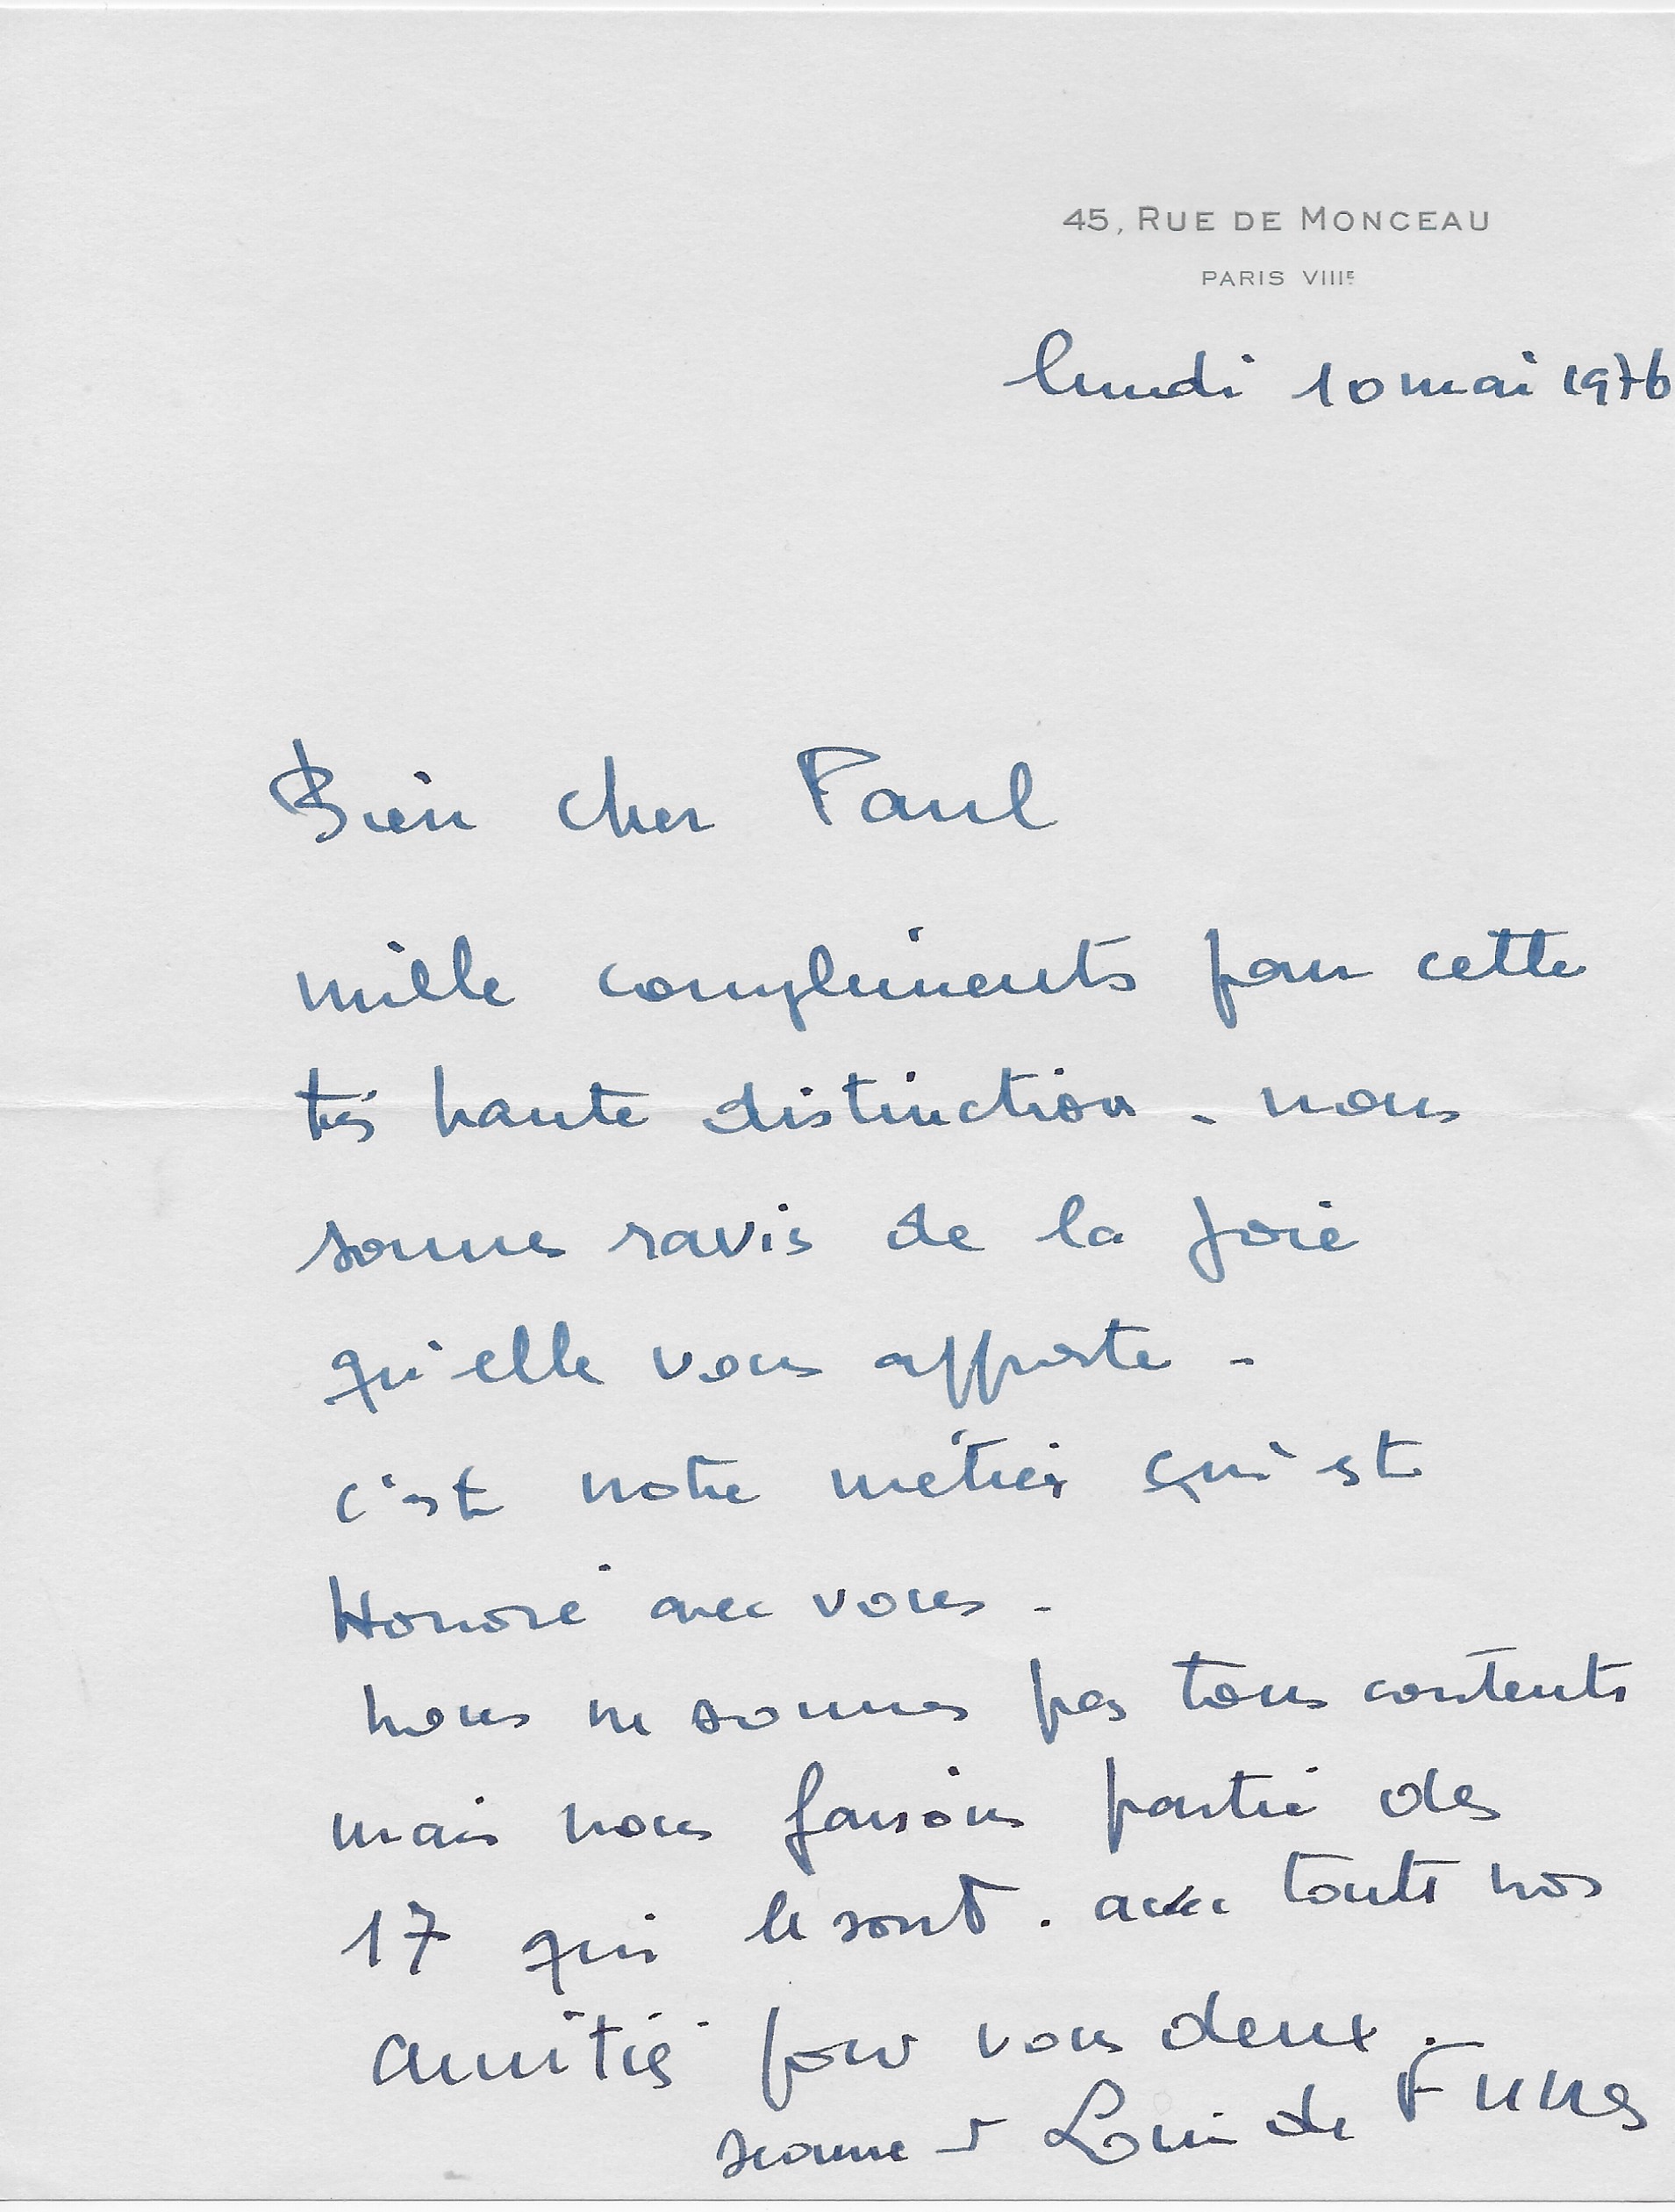 45, RUE DE MONCEAU
PARIS VIIIE
lundi 10 mai 1976
Bien cher Paul
mille compliments pour cette
très haute distinction. nous
sommes ravis de la joie
qu'elle vous apporte.
c'est notre métier qui est
Honoré avec vous.
nous ne sommes pas tous contents
mais nous faisons partie des
17 qui le sont. avec toute nos
amitiés pour vous deux.
Jeanne et Louis de Funes